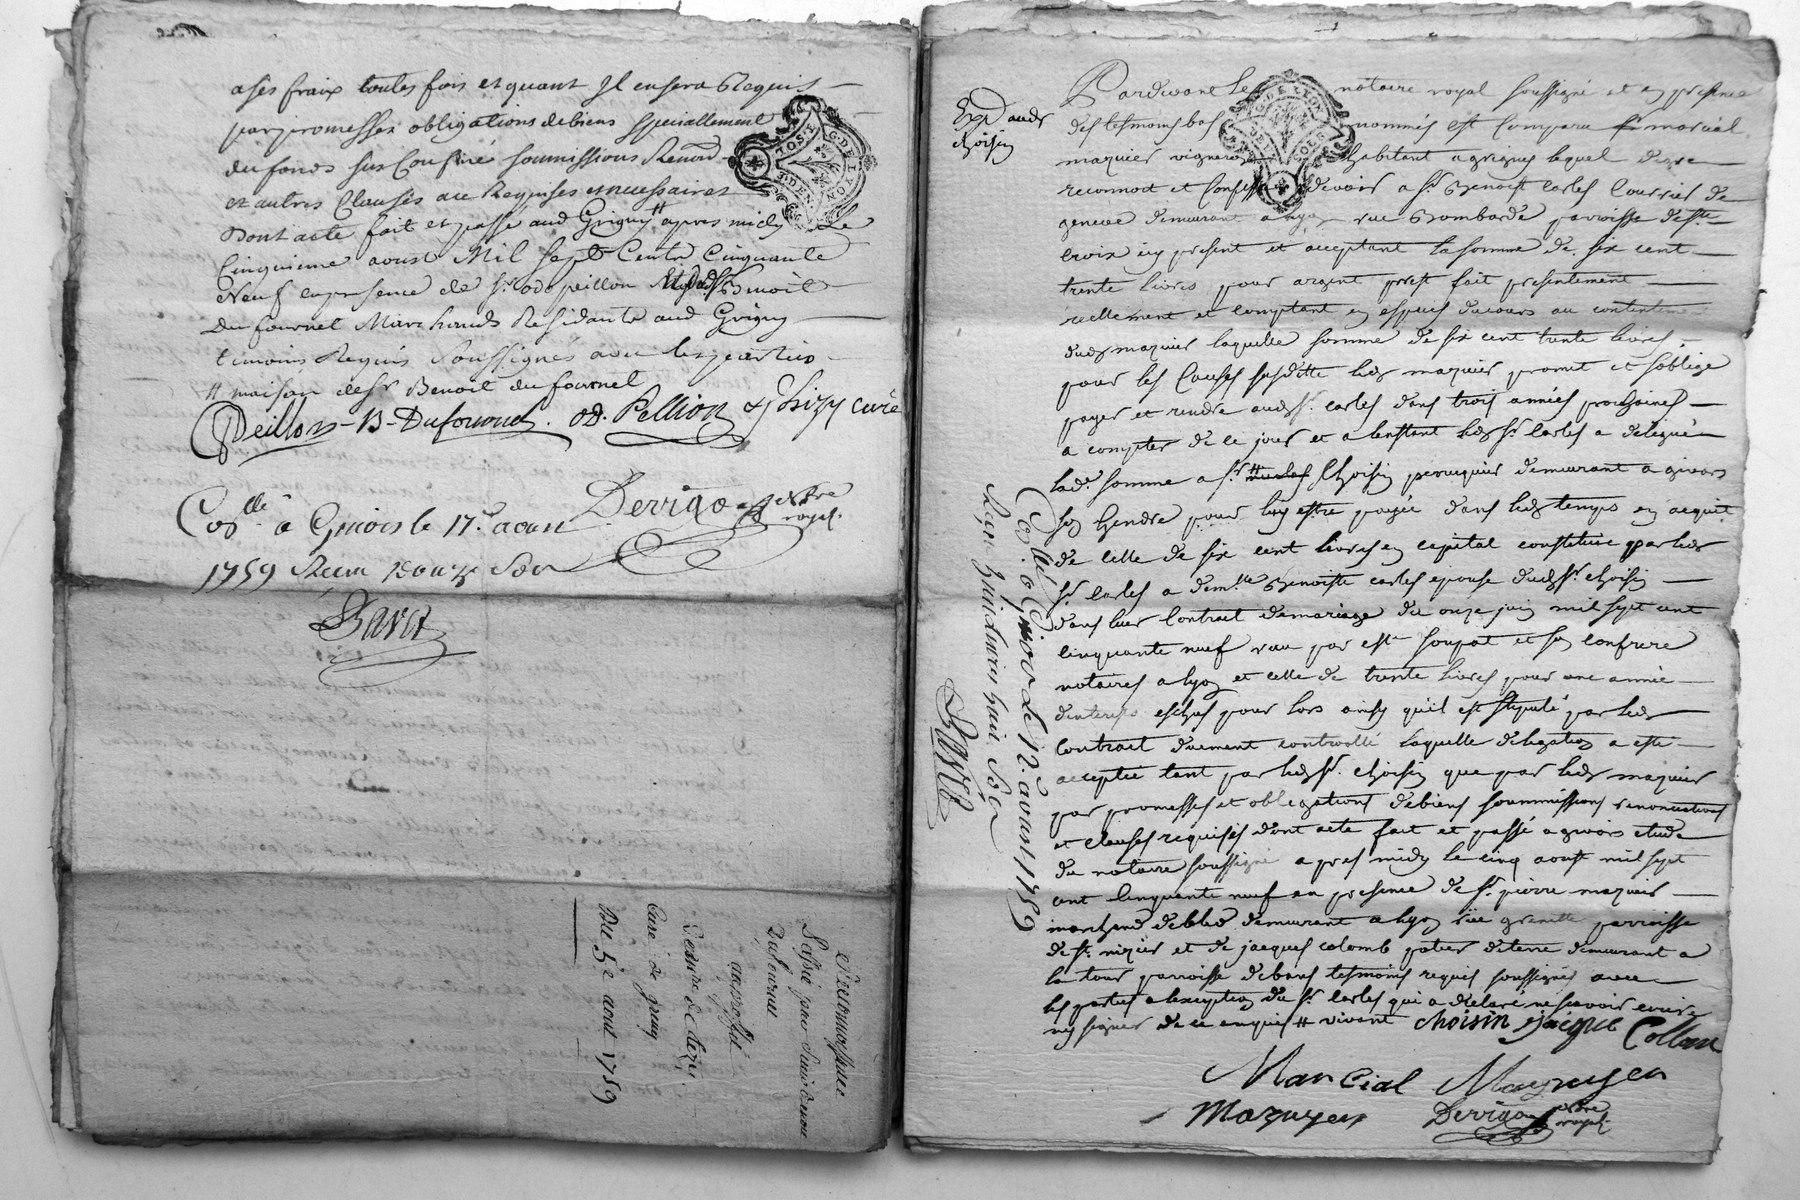 a ses fraix toutes fois et quant Il en sera Requis
par promesses obligations de biens speciallement
du fonds sus Confiné soumissions Renon-
et autres Clauses au Requises et necessaires
Dont acte fait et passé aud Grigny # apres midy Le
Cinquieme aoust Mil sept Cents Cinquante
Neuf en presence de Sr odo peillon Benoit
Du fournel Marchands Residants aud Grigny
temoins Requis Soussignes avec les parties
# maison de Sr Benoit du fournel
Peillon B Dufournel OD. Pellion curé
Derrigo nore royal
Colé a Givors le 17e aoust
1759 Recu douze sols
aud
passé par
au profit
curé de grigny
Du 5e aout 1759
Exp. aud Sr
choisin
Pardevant le notaire royal soussigné et en presence
des tesmoins bas nommés est comparu marcial
mazuier vigneron habitant a grigny lequel de gré
reconnoit et confesse devoir a Sr Benoist carles courrier de
geneve demeurant a lyon rue Bombarde parroisse de Ste
croix icy present et acceptant la somme de six cent
trente livres pour argent prest fait presentement
reellement et comptant en especes du cours au contentem.
dud mazuier laquelle somme de six cent trente livres
pour les causes susditte led mazuier promet et s'oblige
payer et rendre aud Sr carles dans trois années prochaines
a compter de ce jour et a l'instant led Sr carles a delegué
lade somme a Sr # choisin perruquier demeurant a givors
son gendre pour luy estre payée dans led temps en acquit
de celle de six cent livres en capital constituée par led
Sr carles a demlle Benoiste carles epouse dud Sr choisin
dans leur contract de mariage du onze juin mil sept cent
cinquante neuf reçu par Me soupat et son confrere
notaires a lyon et celle de trente livres pour une année
d'interests eschus pour lors ainsy qu'il est stipulé par led
contract duement controollé laquelle delegation a esté
acceptée tant par led Sr. choisin que par led mazuier
par promesses et obligations de biens soummissions renonciations
et clauses requises dont acte fait et passé a givors etude
du notaire soussigné apres midy le cinq aoust mil sept
cent cinquante neuf en presence de Sr. pierre mazuier
marchand de bled demeurant a lyon rüe grenette parroisse
de St. nizier et de jacques colomb potier de terre demeurant a
la tour parroisse de tesmoins requis soussignés avec
les parties a l'exception du Sr. carles qui a declaré ne sçavoir ecrire
ny signer de ce enquis # vivant choisin Jacque Collom
Marcial Mazuyer
Mazuyer Derrigo nore royal
Colé a Givors Le 12e aoust 1759
Reçu huit sols